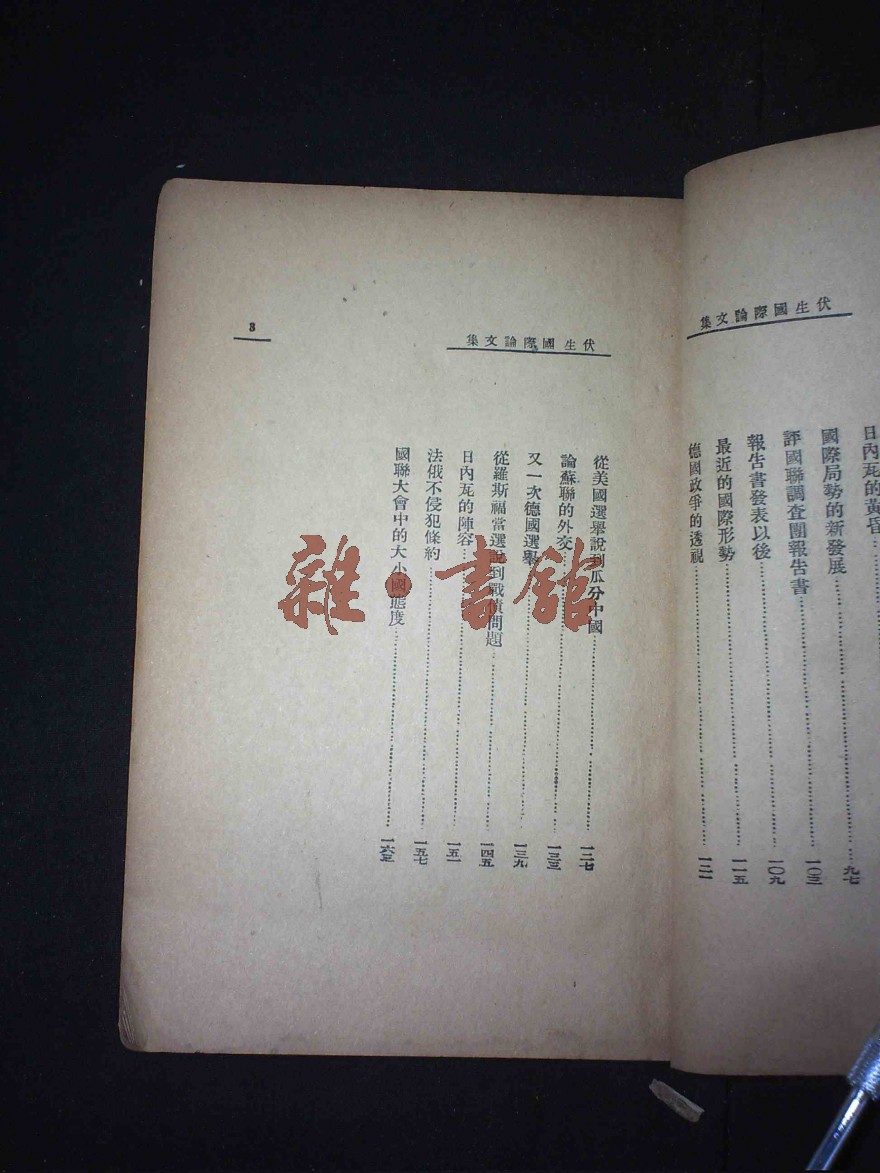 伏生國際論文集
日內瓦的黃昏
國際局勢的新發展……九七
評國聯調查團報告書……一〇三
報告書發表以後……一〇九
最近的國際形勢……一一五
德國政爭的透視……一二一
伏生國際論文集
3
從美國選舉說到瓜分中國……一二七
論蘇聯的外交……一三三
又一次德國選舉……一三九
從羅斯福當選說到戰債問題……一四五
日內瓦的陣容……一五一
法俄不侵犯條約……一五七
國聯大會中的大小國態度……一六三
雜·書館